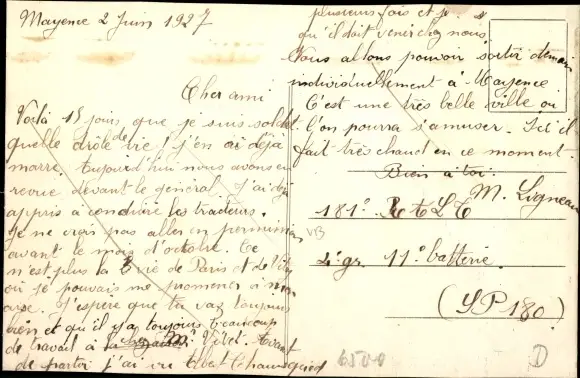 Mayence 2 Juin 1927
Cher ami
Voilà 15 jours que je suis soldat
quelle drôle de vie ! j'en ai déjà
marre. Aujourd'hui nous avons eu
revue devant le général. J'ai déjà
appris à conduire les tracteurs.
Je ne vais pas aller en permission
avant le mois d'octobre. Ce
n'est plus la vie de Paris et de
où je pouvais me promener à mon
aise. J'espère que tu vas toujours
bien et qu'il y a toujours beaucoup
de travail à la Vitet. Avant
de partir j'ai vu
plusieurs fois et je
qu'il doit venir chez nous
Nous allons pouvoir sortir demain
individuellement à Mayence
C'est une très belle ville où
l'on pourra s'amuser. Ici il
fait très chaud en ce moment.
Bien à toi.
M. Ligneau
181°
VB
2° gr. 11° batterie.
(SP 180)
6500
D